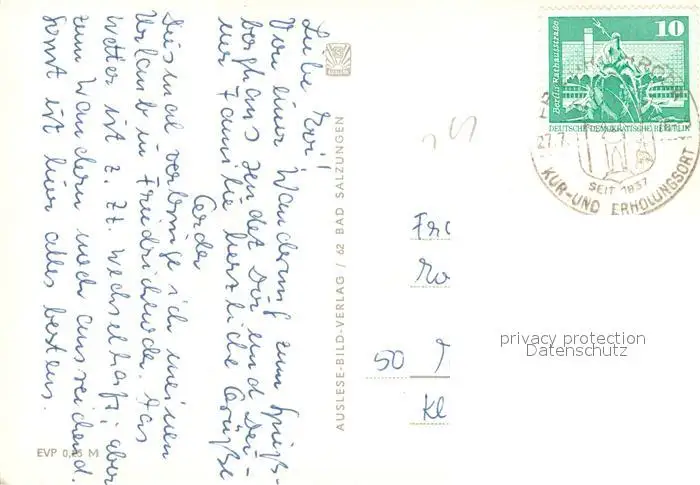 Liebe Evi!
Von einer Wanderung zum Spieß-
berghaus sendet Dir und Dei-
ner Familie herzliche Grüße
Gerda
Diesmal verbringe ich meinen
Urlaub in Friedrichroda. Das
Wetter ist z. Zt. wechselhaft, aber
zum Wandern noch ausreichend.
Sonst ist hier alles bestens.
EVP 0,25 M
AUSLESE-BILD-VERLAG / 62 BAD SALZUNGEN
10
Berlin, Rathausstraße
DEUTSCHE DEMOKRATISCHE REPUBLIK
27.7.
SEIT 1837
KUR-UND ERHOLUNGSORT
50
privacy protection
Datenschutz